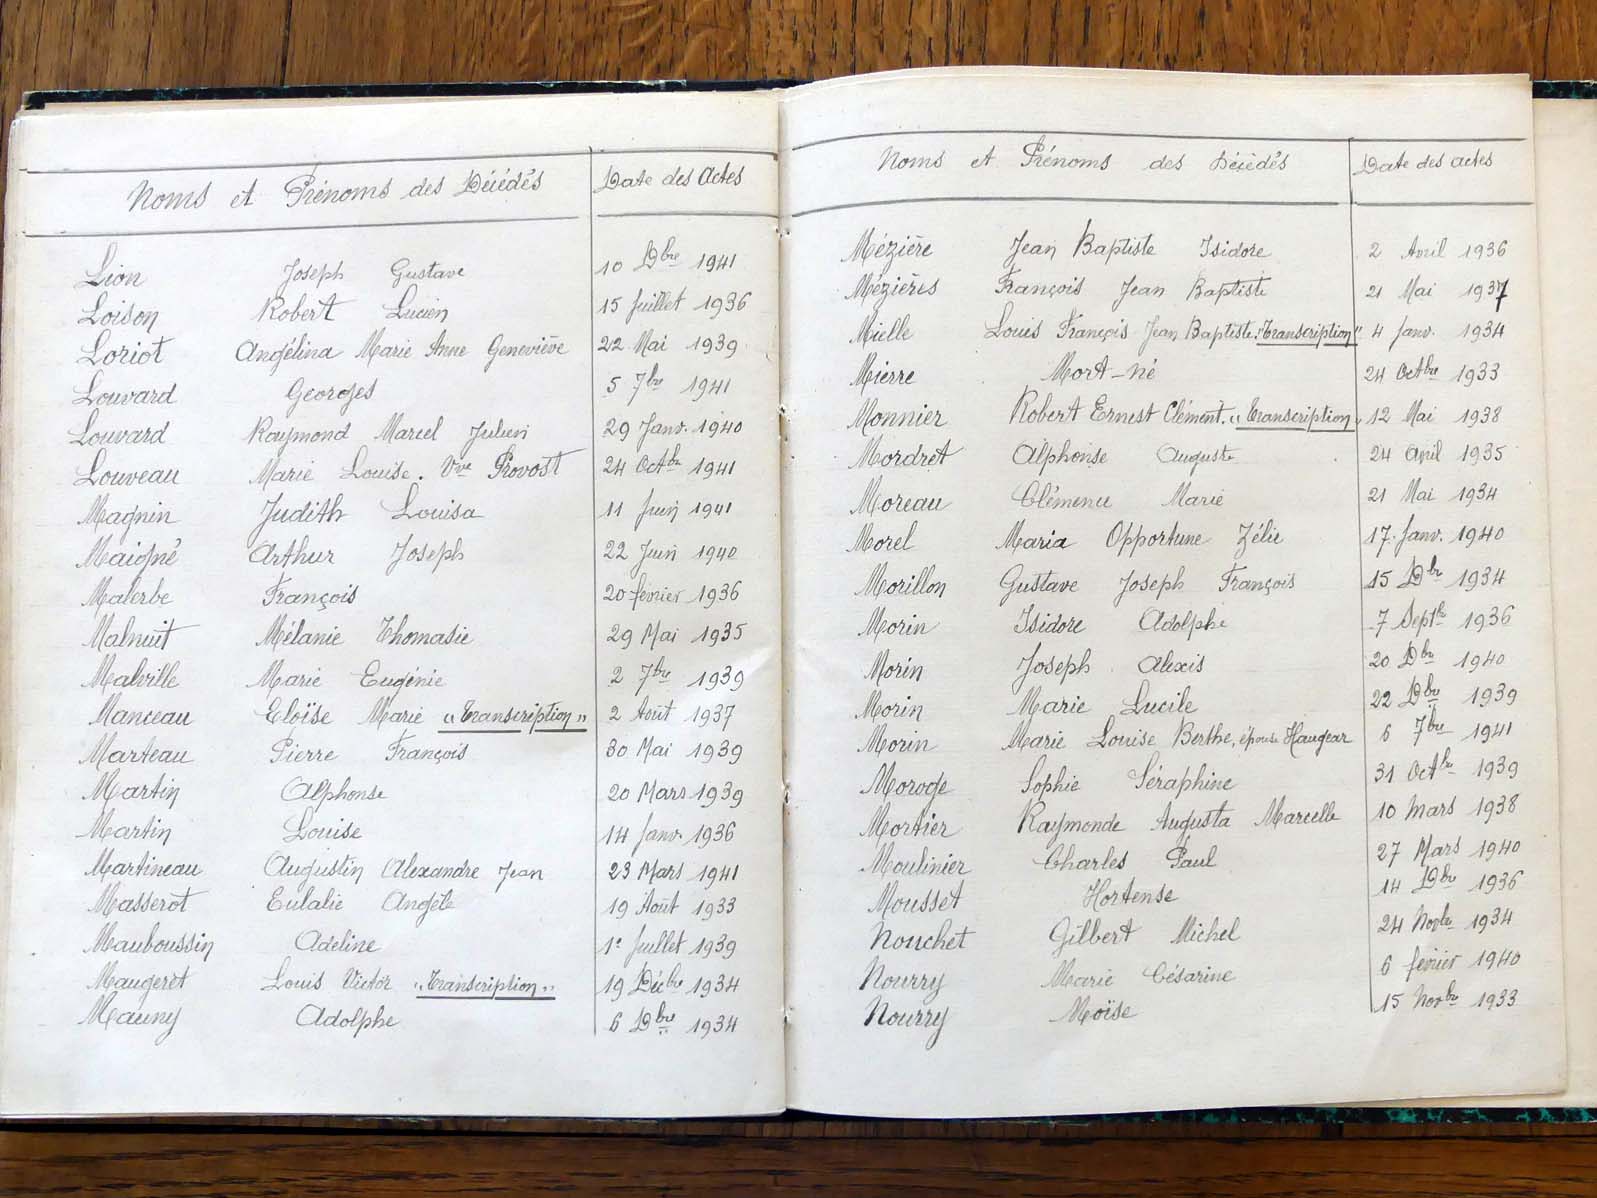 Noms et Prénoms des Décédés Date des Actes
Lion Joseph Gustave 10 Dbre 1941
Loison Robert Lucien 15 Juillet 1936
Loriot Angélina Marie Anne Geneviève 22 Mai 1939
Louvard Georges 5 7bre 1941
Louvard Raymond Marcel Julien 29 Janv. 1940
Louveau Marie Louise. Vve Provost 24 Octbre 1941
Magnin Judith Louisa 11 Juin 1941
Maigné Arthur Joseph 22 Juin 1940
Malerbe François 20 février 1936
Malnuit Mélanie Thomasie 29 Mai 1935
Malville Marie Eugénie 2 7bre 1939
Manceau Eloïse Marie "Transcription" 2 Août 1937
Marteau Pierre François 30 Mai 1939
Martin Alphonse 20 Mars 1939
Martin Louise 14 Janv. 1936
Martineau Augustin Alexandre Jean 23 Mars 1941
Masserot Eulalie Angèle 19 Août 1933
Mauboussin Adeline 1e Juillet 1939
Maugeret Louis Victor "Transcription" 19 Décbre 1934
Mauny Adolphe 6 Dbre 1934
Noms et Prénoms des Décédés Date des actes
Mézière Jean Baptiste Isidore 2 Avril 1936
Mézières François Jean Baptiste 21 Mai 1937
Mielle Louis François Jean Baptiste "Transcription" 4 Janv. 1934
Mierre Mort-né 24 Octbre 1933
Monnier Robert Ernest Clément. "Transcription" 12 Mai 1938
Mordret Alphonse Auguste 24 avril 1935
Moreau Clémence Marie 21 Mai 1934
Morel Maria Opportune Zélie 17 Janv. 1940
Morillon Gustave Joseph François 15 Dbre 1934
Morin Isidore Adolphe 7 Septbre 1936
Morin Joseph Alexis 20 Dbre 1940
Morin Marie Lucile 22 Dbre 1939
Morin Marie Louise Berthe, épouse Haugear 6 7bre 1941
Moroge Sophie Séraphine 31 Octbre 1939
Mortier Raymonde Augusta Marcelle 10 Mars 1938
Moulinier Charles Paul 27 Mars 1940
Mousset Hortense 14 Dbre 1936
Nouchet Gilbert Michel 24 Novbre 1934
Nourry Marie Césarine 6 février 1940
Nourry Moïse 15 Novbre 1933